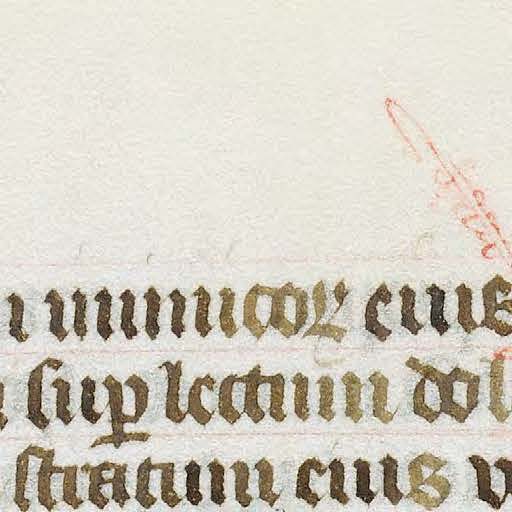 inimicoꝝ eius
suꝑ lectum dol
stratum eius v